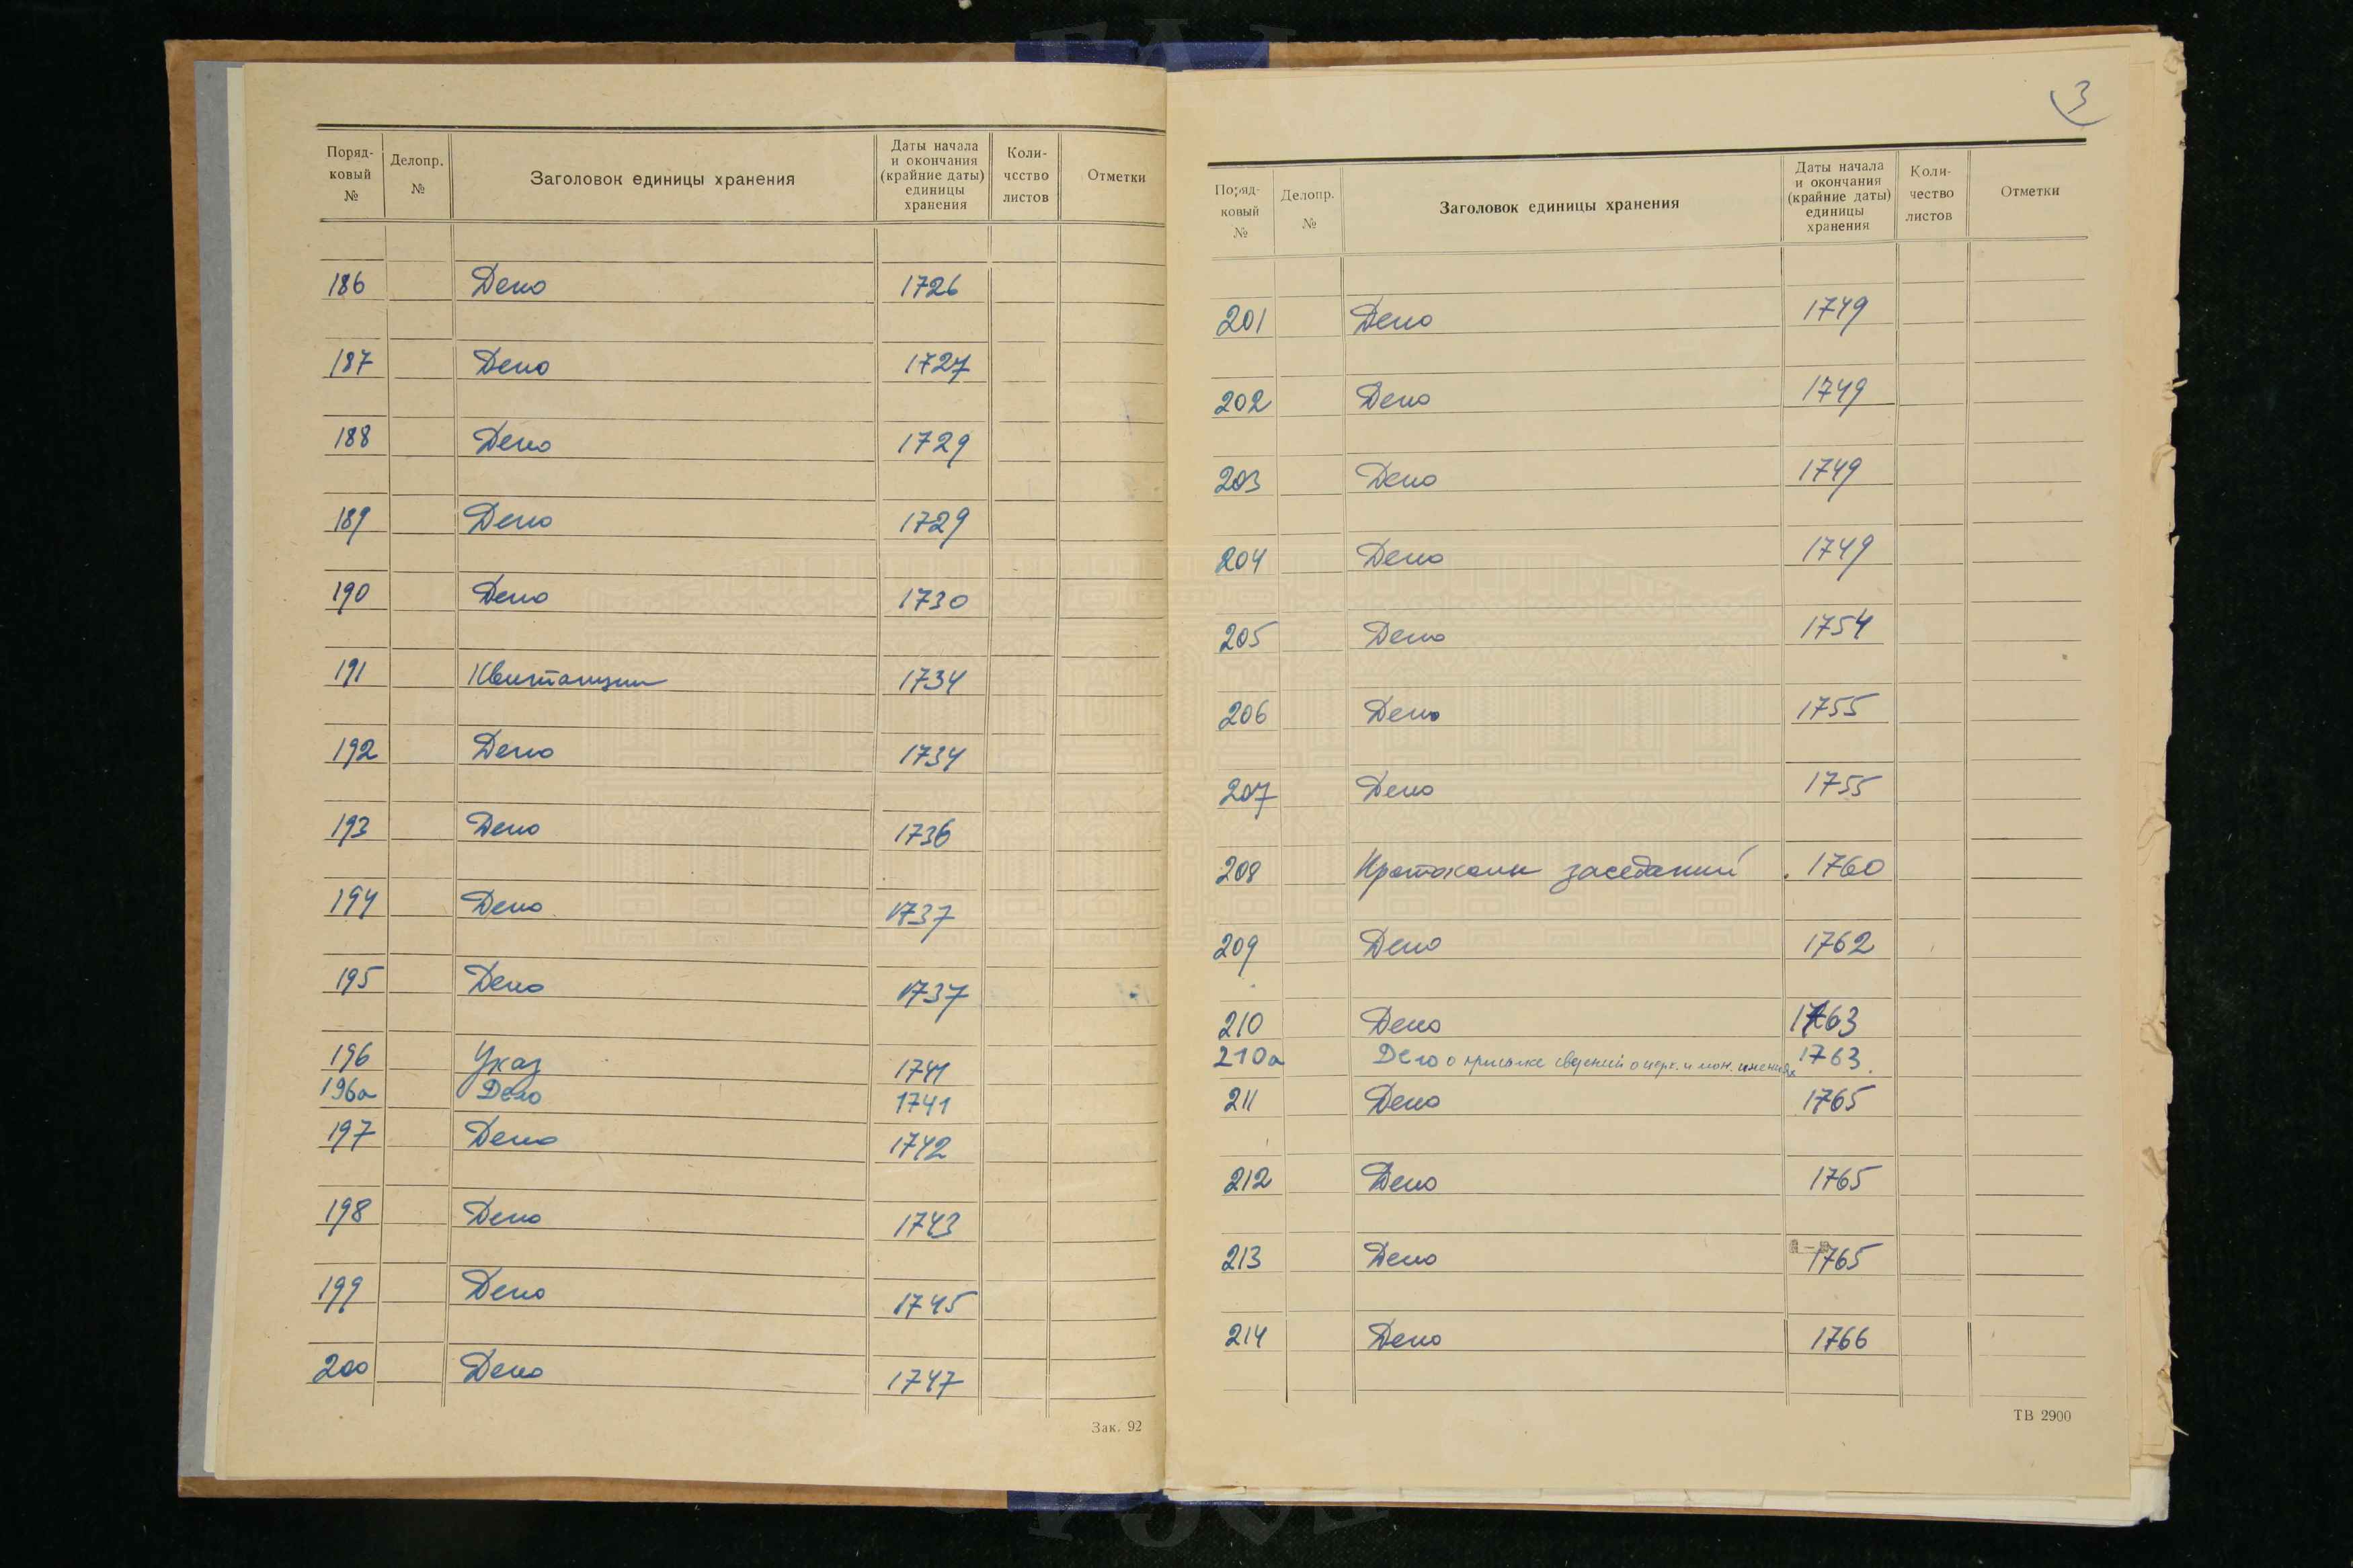 Поряд-
ковый
№
Делопр.
№
Заголовок единицы хранения
Даты начала
и окончания
(крайние даты)
единицы
хранения
Коли-
чество
листов
Отметки
186 Дело 1726
187 Дело 1727
188 Дело 1729
189 Дело 1729
190 Дело 1730
191 Квитанции 1734
192 Дело 1734
193 Дело 1736
194 Дело 1737
195 Дело 1737
196 Указ 1741
196а Дело 1741
197 Дело 1742
198 Дело 1743
199 Дело 1745
200 Дело 1747
Зак. 92
3
Поряд-
ковый
№
Делопр.
№
Заголовок единицы хранения
Даты начала
и окончания
(крайние даты)
единицы
хранения
Коли-
чество
листов
Отметки
201 Дело 1749
202 Дело 1749
203 Дело 1749
204 Дело 1749
205 Дело 1754
206 Дело 1755
207 Дело 1755
208 Протоколы заседаний 1760
209 Дело 1762
210 Дело 1763
210а Дело о присылке сведений о церк. и мон. имениях 1763.
211 Дело 1765
212 Дело 1765
213 Дело 1765
214 Дело 1766
ТВ 2900